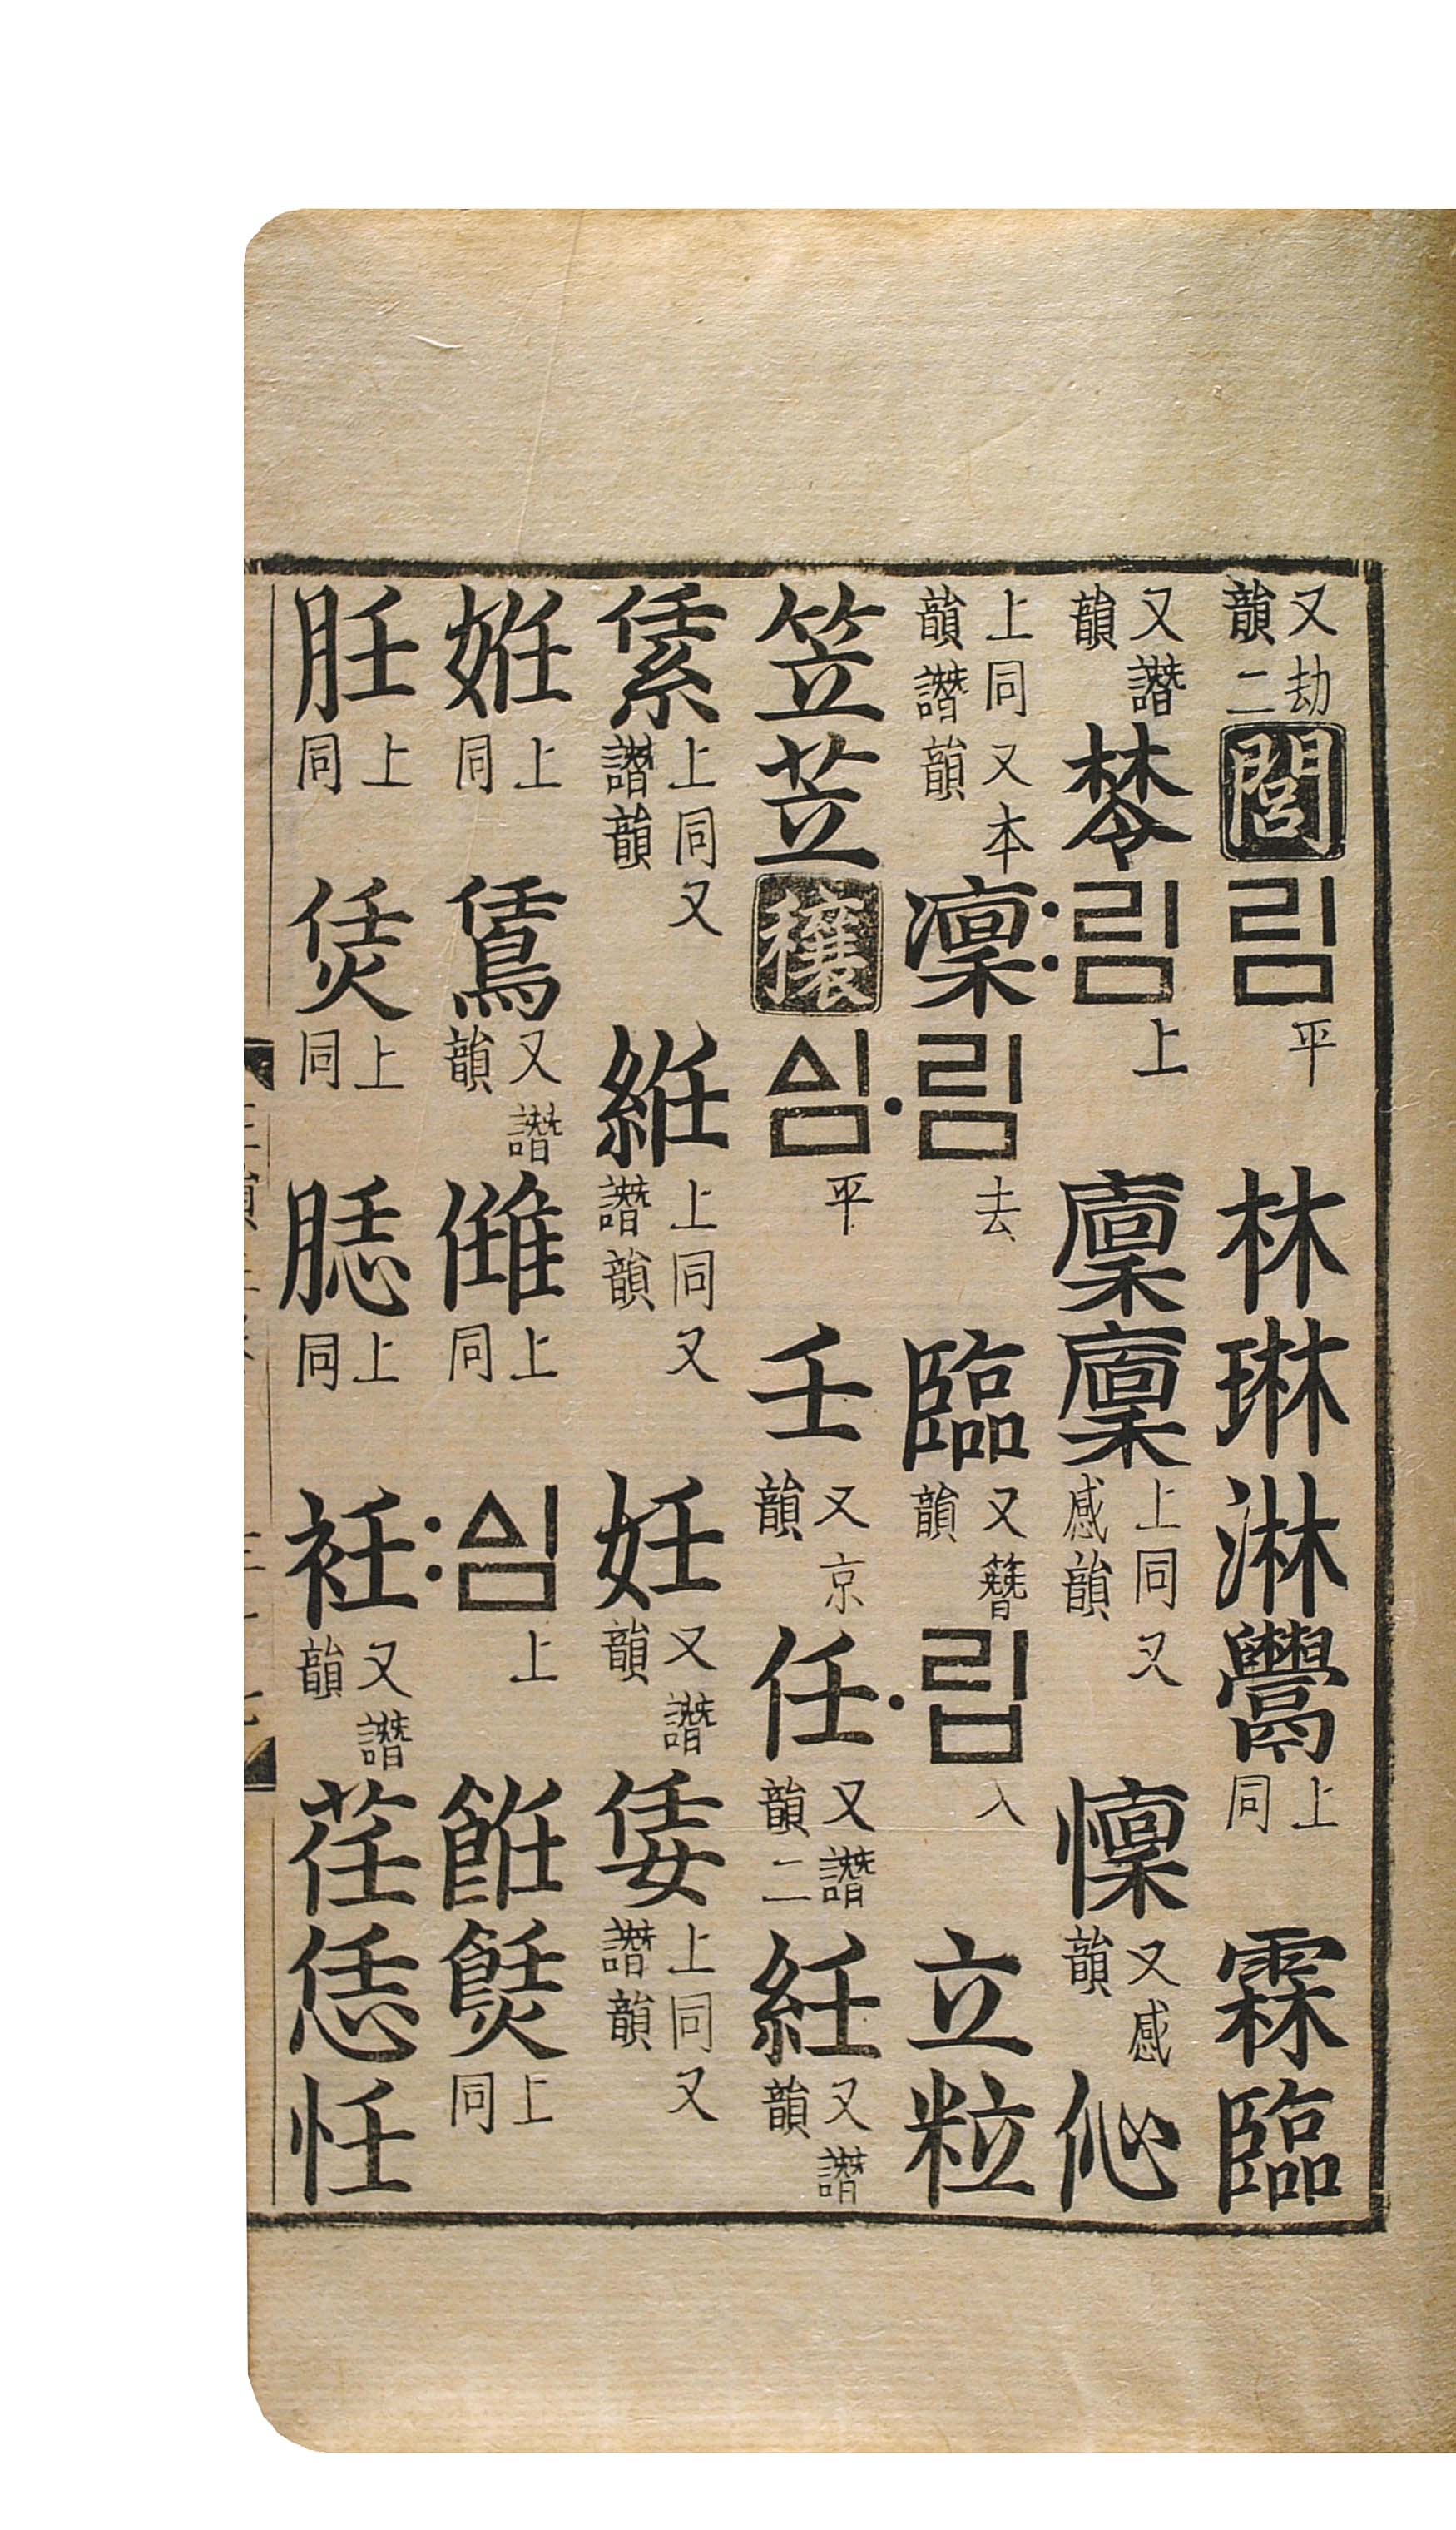 又劫韻二閭림平林琳淋上同霖臨
又譖韻棽〯림上廩廪上同又感韻懍又感韻伈
上同又本韻譖韻凜〮림去臨又簪韻〮립入立粒
笠苙穰ᅀᅵᆷ平壬又京韻任又譖韻二紝又譖韻
上同又譖韻絍上同又譖韻妊又譖韻上同又譖韻
姙上同鵀又譖韻上同〯ᅀᅵᆷ上餁上同
上同上同上同衽又譖韻荏恁